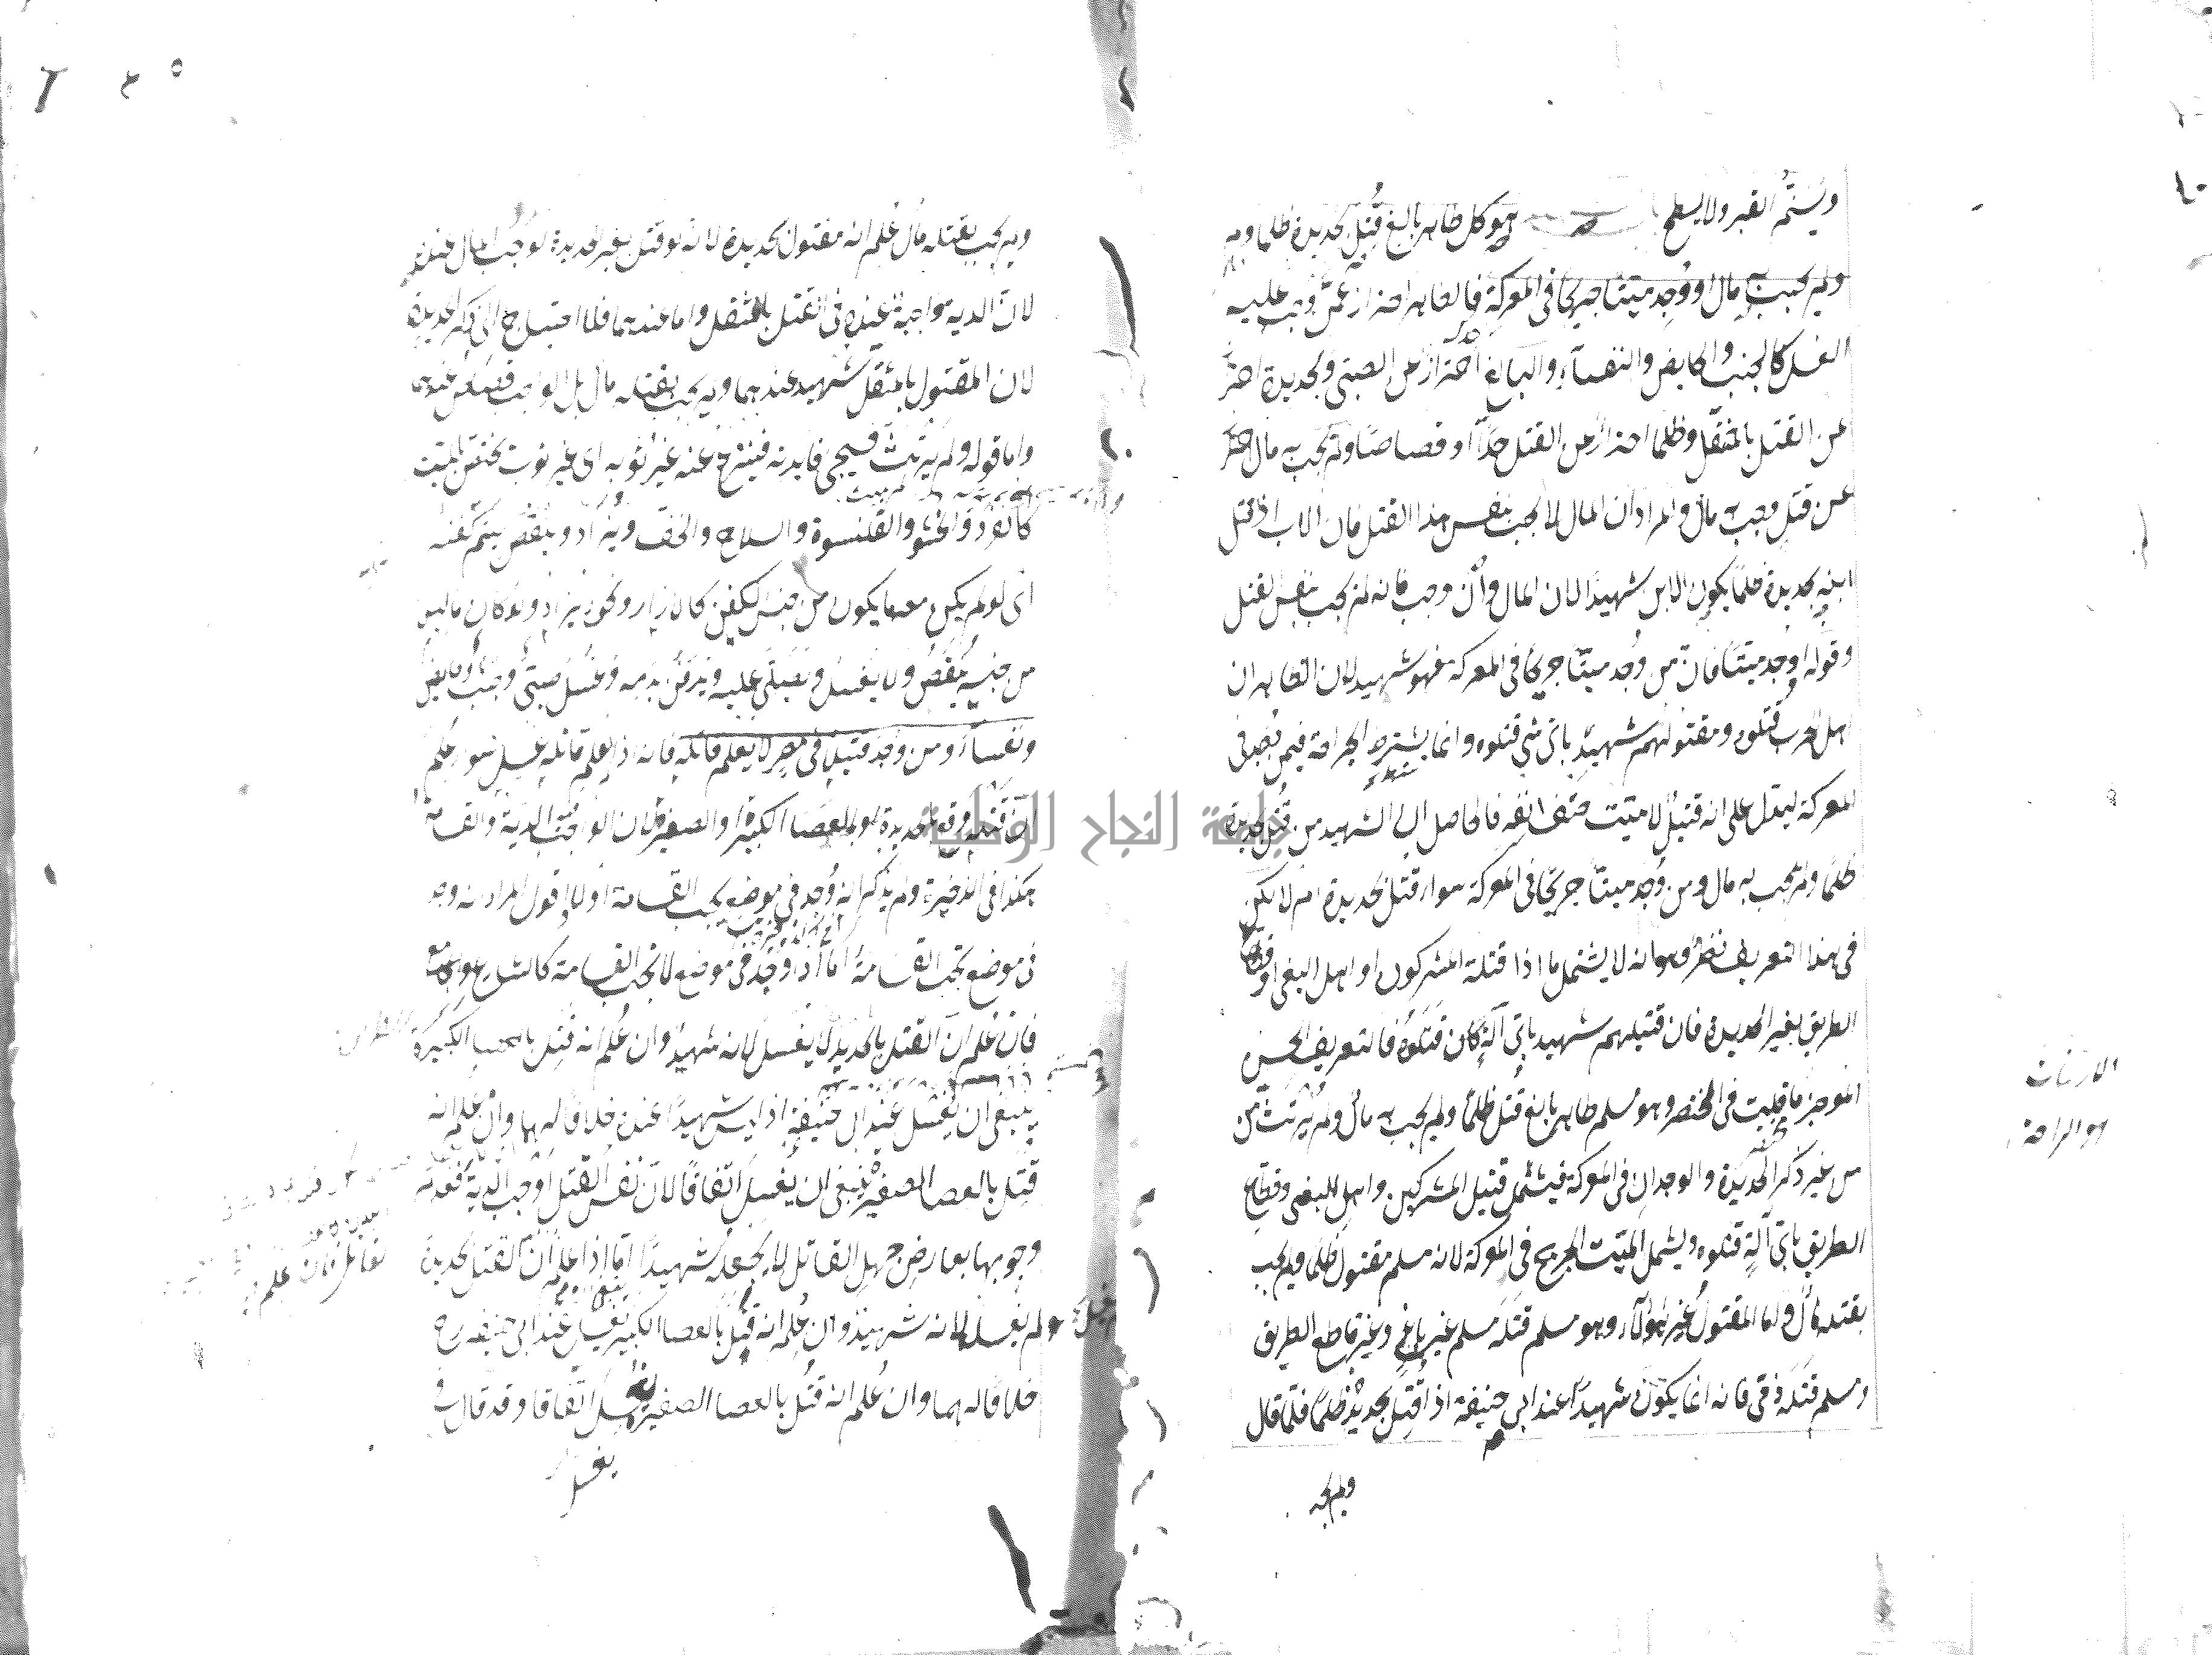 ويسنم القبر ولا يسطح هو كل طاهر بالغ قتل بحديدة ظلما
ولم يجب به مال او وجد ميتا جريحا في المعركة فالطاهر احتراز عمن وجب عليه
الغسل كالجنب والحايض والنفساء والبالغ احتراز عن الصبي وبحديدة احتراز
عن القتل بالمثقل وظلما احتراز عن القتل حدا او قصاصا ولم يجب به مال احتراز
عن قتل وجب به مال والمراد ان المال لا يجب بنفس هذا القتل فان الاب اذا قتل
ابنه بحديدة ظلما يكون الابن شهيدا لان المال وان وجب فانه لم يجب بنفس القتل
وقوله او وجد ميتا فان من وجد ميتا جريحا في المعركة فهو شهيد لان الظاهر ان
اهل الحرب قتلوه ومقتولهم شهيد باي شي قتلوه وانما يشترط الجراحة فيمن وجد في
المعركة ليدل على انه قتيل لا ميت حتف انفه فالحاصل ان الشهيد من قتل بحديدة
ظلما ولم يجب به مال ومن وجد ميتا جريحا في المعركة سواء قتل بحديدة ام لا لكن
في هذا التعريف نظر وهو انه لا يشتمل ما اذا قتله المشركون او اهل البغي او قطاع
الطريق بغير الحديدة فان قتيلهم شهيد باي آلة كان قتلوه فالتعريف الحسن
الموجز ما قلت في المختصر وهو مسلم طاهر بالغ قتل ظلما ولم يجب به مال ولم يرتث من
من غير ذكر الحديدة والوجدان في المعركة فيشمل قتيل المشركين واهل البغي وقطاع
الطريق باي آلة قتلوه ويشمل الميت الجريح في المعركة لانه مسلم مقتول ظلما ولم يجب
بقتله مال واما المقتول غير هؤلاء وهو مسلم قتله مسلم غير باغ وغير قاطع الطريق
ومسلم قتله ذمي فانه انما يكون شهيدا عند ابي حنيفة اذا قتل بحديدة ظلما فلما قال
ولم يجب
الارتثاث
هو الراحة
ولم يجب بقتله مال علم انه مقتول بحديدة لانه لو قتل بغير حديدة لوجب المال عنده
لان الدية واجبة عنده في القتل بالمثقل واما عندهما فلا احتياج الى ذكر الحديدة
لان المقتول بالمثقل شهيد عندهما ولم يجب بقتله مال بل الواجب قصاص عندهما
واما قوله ولم يرتث فسيجي فايدته فينزع عنه غير ثوبه اي غير ثوب يختص بالميت
كالفرو والحشو والقلنسوة والسلاح والخف ويزاد وينقص ليتم كفنه
اي لو لم يكن معه ما يكون من جنس الكفن كالازار ونحوه يزاد ولو كان ما ليس
من جنسه ينقص ولا يغسل ويصلى عليه ويدفن بدمه وغسل صبي وجنب وحايض
ونفساء ومن وجد قتيلا في مصر لا يعلم قاتله فانه اذا لم يعلم قاتله غسل سواء علم
ان قتله وقع بالحديدة او بالعصا الكبيرة او الصغيرة لان الواجب الدية والقسامة
هكذا في الذخيرة ولم يذكر انه وجد في موضع يجب القسامة او لا اقول المراد انه وجد
في موضع تجب القسامة اما اذا وجد في موضع لا تجب القسامة كالشارع والجامع
فان علم ان القتل بالحديد لا يغسل لانه شهيد وان علم انه قتل بالعصا الكبيرة
ينبغي ان يغسل عند ابي حنيفة اذ ليس شهيدا عنده خلافا لهما وان علم انه
قتل بالعصا الصغيرة ينبغي ان يغسل اتفاقا لان نفس القتل اوجب الدية فعدم
وجوبها بعارض جهل القاتل لا يجعله شهيدا اما اذا علم ان القتل بحديدة
لم يغسل لانه شهيد وان علم انه قتل بالعصا الكبير يغسل عند ابي حنيفة رح
خلافا لهما وان علم انه قتل بالعصا الصغيرة يغسل اتفاقا وقد قال في
يغسل
جامعة النجاح الوطنية